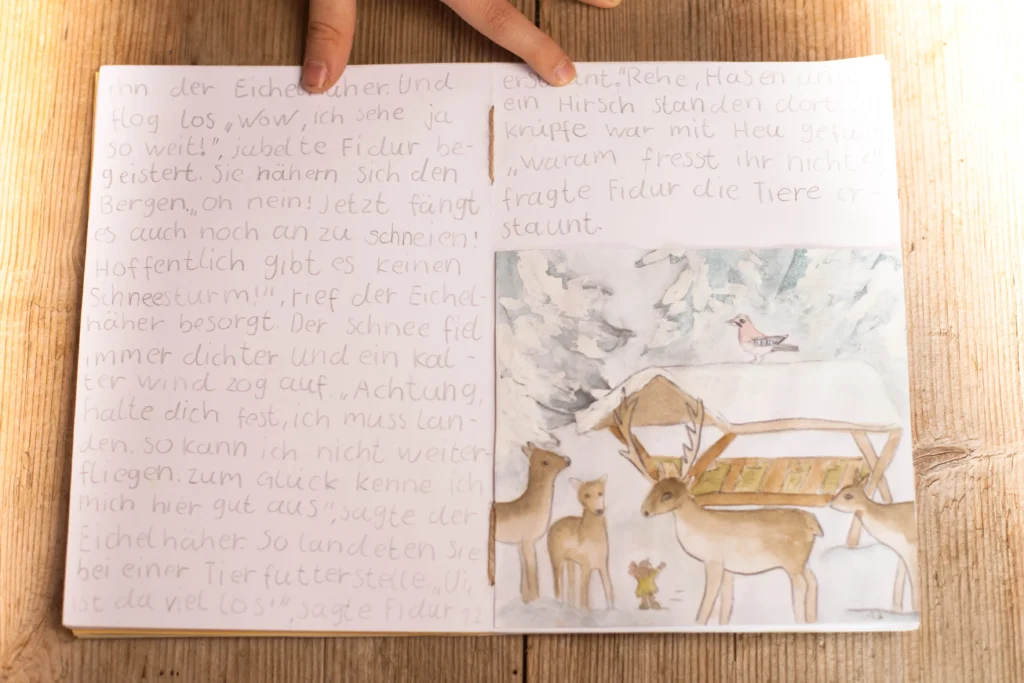 ihn der Eichelnäher. Und
flog los „Wow, ich sehe ja
so weit!", jubelte Fidur be-
geistert. Sie nähern sich den
Bergen. „Oh nein! Jetzt fängt
es auch noch an zu schneien!
Hoffentlich gibt es keinen
Schneesturm!", rief der Eichel-
näher besorgt. Der schnee fiel
immer dichter und ein kal-
ter wind zog auf. „Achtung,
halte dich fest, ich muss lan-
den. So kann ich nicht weiter-
fliegen. Zum Glück kenne ich
mich hier gut aus", sagte der
Eichelhäher. So landeten Sie
bei einer Tierfutterstelle. „Ui,
ist da viel los", sagte Fidur
erstaunt. "Rehe, Hasen
ein Hirsch standen dort
krüpfe war mit Heu
„warum fresst ihr nicht?",
fragte Fidur die Tiere er-
staunt.